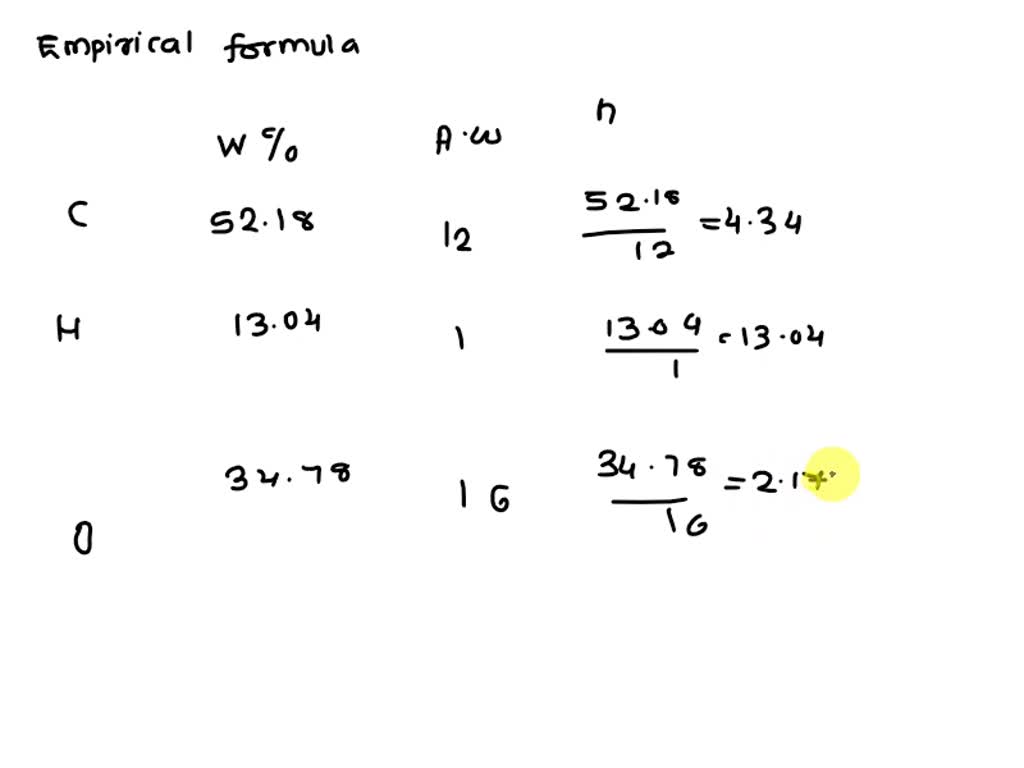 Empirical formula
W % A.W n
C 52.18 12 52.18/12 = 4.34
H 13.04 1 13.04/1 = 13.04
O 34.78 16 34.78/16 = 2.17